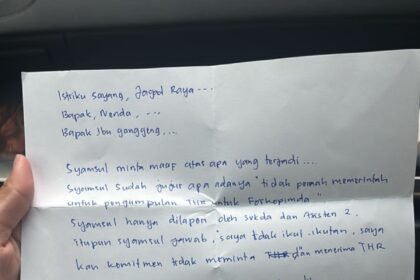 Istriku sayang, Jagad Raya ---
Bapak, Nenda, ...
Bapak Ibu ganggeng...
Syamsul minta maaf atas apa yang terjadi....
Syamsul sudah jujur apa adanya "tidak pernah memerintah
untuk pengumpulan THR untuk Forkopimda"
Syamsul hanya dilapori oleh sekda dan Asisten 2.
itupun syamsul jawab, "saya tidak ikut-ikutan, saya
kan komitmen tidak meminta dan menerima THR